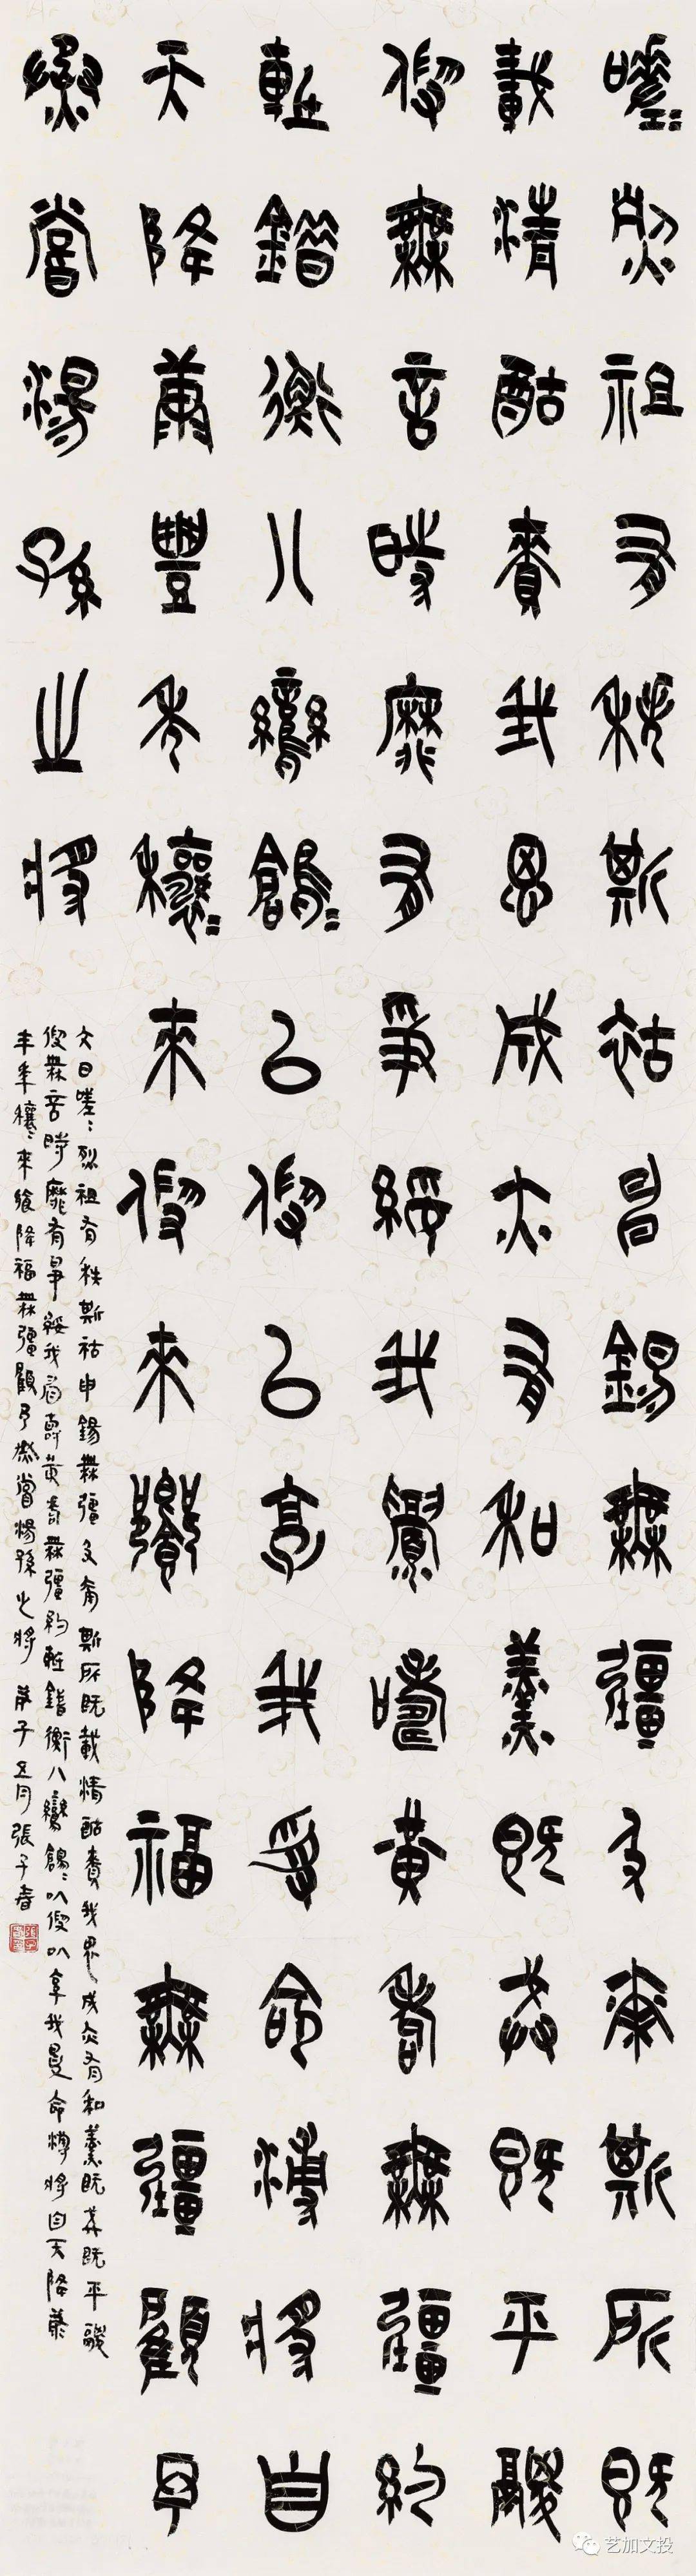 嗟嗟烈祖有秩斯祜申錫無疆及爾斯所既
載清酤賚我思成亦有和羹既戒既平鬷
假無言時靡有爭綏我眉壽黃耇無疆約
軧錯衡八鸞鶬鶬以假以享我受命溥將自
天降康豐年穰穰來假來饗降福無疆顧予
烝嘗湯孫之將
文曰嗟嗟烈祖有秩斯祜申錫無疆及爾斯所既載清酤賚我思成亦有和羹既戒既平鬷
假無言時靡有爭綏我眉壽黃耇無疆約軧錯衡八鸞鶬鶬以假以享我受命溥將自天降康
丰年穰穰來饗降福無疆顧予烝嘗湯孫之將 庚子五月張子春
艺加文投